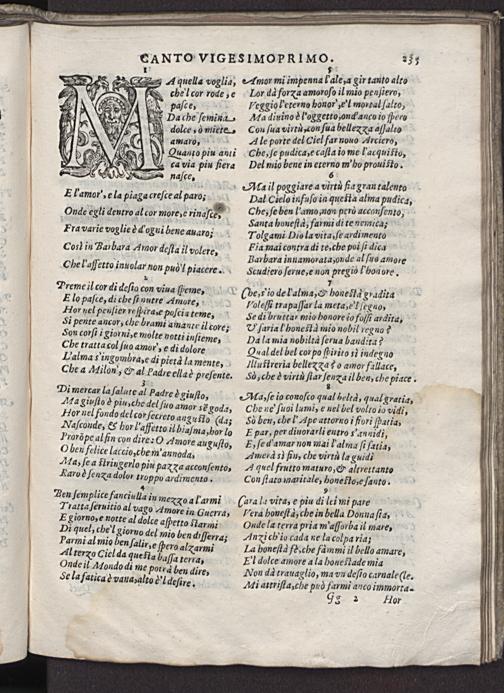 CANTO VIGESIMOPRIMO. 235
1
MA quella voglia,
che'l cor rode, e
pasce,
Da che semina
dolce, ò miete
amaro,
Quanto piu anti
ca via piu fiera
nasce,
E l'amor', e la piaga cresce al paro;
Onde egli dentro al cor more, e rinasce,
Fra varie voglie è d'ogni bene auaro;
Così in Barbara Amor desta il volere,
Che l'affetto inuolar non può'l piacere.
2
Preme il cor di desio con viua speme,
E lo pasce, di che si nutre Amore,
Hor nel pensier respira e poscia teme,
Si pente ancor, che brami amante il core;
Son corsi i giorni, e molte notti insieme,
Che tratta col suo amor', e di dolore
L'alma s'ingombra, e di pietà la mente,
Che a Milon', & al Padre ella è presente.
3
Di mercar la salute al Padre è giusto,
Ma giusto è piu, che del suo amor sẽ goda,
Hor nel fondo del cor secreto angusto (da;
Nasconde, & hor l'affetto il biasma, hor lo
Prorõpe al fin con dire: O Amore augusto,
O ben felice laccio, che m'annoda,
Ma, se a stringerlo piu pazza acconsento,
Raro è senza dolor troppo ardimento.
4
Ben semplice fanciulla in mezzo a l'armi
Tratta seruitio al vago Amore in Guerra,
E giorno, e notte al dolce aspetto starmi
Di quel, che'l giorno del mio ben disserra;
Parmi al mio ben salir, e spero alzarmi
Al terzo Ciel da questa bassa terra,
Onde il Mondo di me potrà ben dire,
Se la fatica è vana, alto è'l desire.
5
Amor mi impenna l'ale, a gir tanto alto
Lor dà forza amoroso il mio pensiero,
Veggio l'eterno honor', e'l mortal salto,
Ma diuino è l'oggetto, ond'anco io spero
Con sua virtù, con sua bellezza assalto
A le porte del Ciel far nouo Arciero,
Che, se pudica, e casta io me l'acquisto,
Del mio bene in eterno m'ho prouisto.
6
Ma il poggiare a virtù fia gran talento
Dal Cielo infuso in questa alma pudica,
Che, se ben l'amo, non però acconsento,
Santa honestà, farmi di te nemica;
Tolgami Dio la vita, se ardimento
Fia mai contra di te, che poi si dica
Barbara innamorata, onde al suo amore
Scudiero serue, e non pregio l'honore.
7
Che, s'io de l'alma, & honestà gradita
Volessi trapassar la meta, e'l segno,
Se di bruttar mio honore io fossi ardita,
V saria l'honestà mio nobil regno?
Da la mia nobiltà serua bandita?
Qual del bel corpo spirito sì indegno
Illustreria bellezza? o amor fallace,
Sò, che è virtù star senza il ben, che piace.
8
Ma, se io conosco qual beltà, qual gratia,
Che ne' suoi lumi, e nel bel volto io vidi,
Sò ben, che l'Ape attorno i fiori spatia,
E par, per diuorarli entro s'annidi,
E, se d'amar non mai l'alma si satia,
Amerà sì fin, che virtù la guidi
A quel frutto maturo, & altrettanto
Con stato maritale, honesto, e santo.
9
Cara la vita, e piu di lei mi pare
Vera honestà, che in bella Donna sia,
Onde la terra pria m'assorba il mare,
Anzi ch'io cada ne la colpa ria;
La honestà fè, che fammi il bello amare,
E'l dolce amore a la honestade mia
Non dà trauaglio, ma vn desio carnale (le.
Mi attrista, che può farmi anco immorta-
Gg 2 Hor